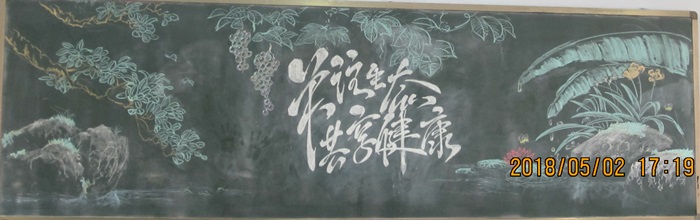 关注生态
共享健康
2018/05/02 17:19